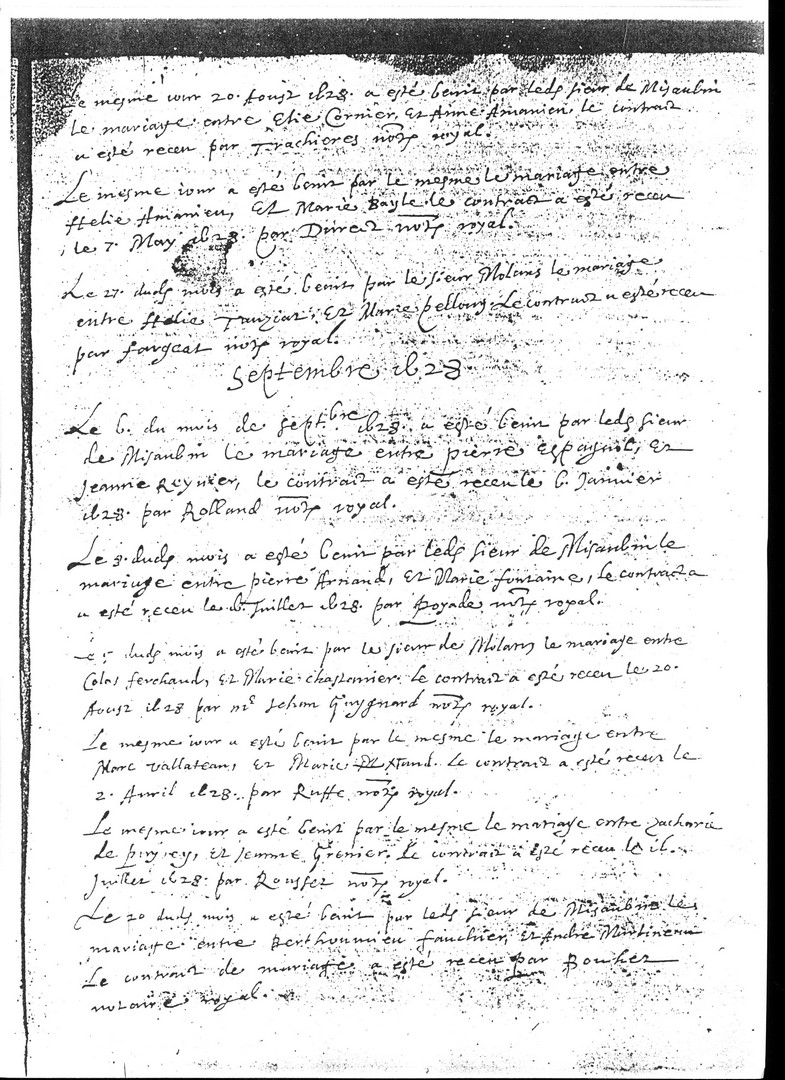 Le mesme iour 20. Aoust 1628. a esté benit par leds sieur de Misaubin
le mariage entre Elie Cornier, Et Anne Amanieu le contract
a esté receu par Trachieres not.e royal.
Le mesme iour a esté benit par le mesme le mariage entre
Helie Amanieu, Et Marie Bayle le contract a esté receu
le 7. May 1628. par Direct not.e royal.
Le 27. duds mois a esté benit par le sieur Molans le mariage
entre Helie Tauziat, Et Marie pellouy. Le contract a esté receu
par fargeat not.e royal.
Septembre 1628
Le 6. du mois de Sept.bre 1628. a esté benit par leds sieur
de Misaubin le mariage entre pierre Espagnol, Et
Jeanne Reynier, le contract a esté receu le 6. Januier
1628. par Rolland not.e royal.
Le 3. duds mois a esté benit par leds sieur de Misaubin le
mariage entre pierre Arnaud, Et Marie fontaine, le contract a
a esté receu le Juillet 1628. par Poyade not.e royal.
Le 5 duds mois a esté benit par le sieur de Molans le mariage entre
Colas ferchaud, Et Marie chastanier. le contract a esté receu le 20.
Aoust 1628 par m.e Jehan Guygnard not.e royal.
Le mesme iour a esté benit par le mesme le mariage entre
Marc Vallateau, Et Marie le contract a esté receu le
2. Auril 1628. par Ruffe not.e royal.
Le mesme iour a esté benit par le mesme le mariage entre Zacharie
de Et Jeanne Grenier. Le contract a esté receu le 16.
Juillet 1628. par Rousset not.e royal.
Le 20 duds mois a esté benit par leds sieur de Misaubin le
mariage entre Berthoumieu fauchier, Et Andre Martineau
Le contract de mariage a esté receu par Bouhet
notaire royal.